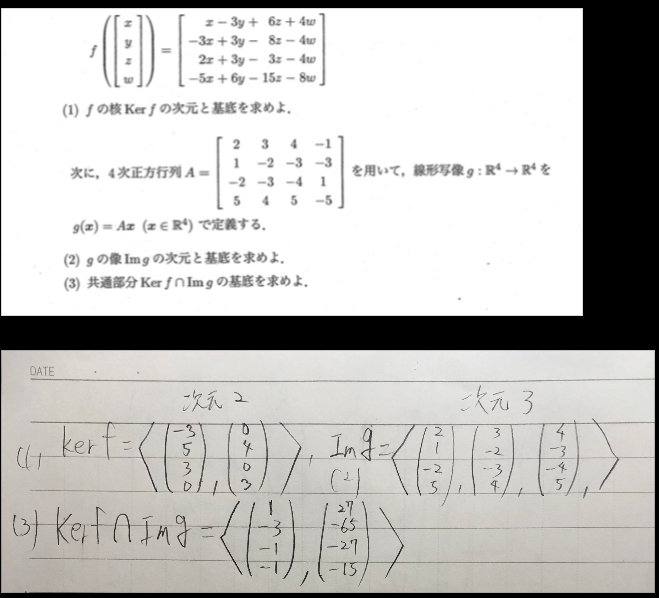 f([x y z w]) = [x − 3y + 6z + 4w
−3x + 3y − 8z − 4w
2x + 3y − 3z − 4w
−5x + 6y − 15z − 8w]
(1) f の核 Ker f の次元と基底を求めよ.
次に, 4次正方行列 A = [2 3 4 −1
1 −2 −3 −3
−2 −3 −4 1
5 4 5 −5] を用いて, 線形写像 g : R⁴ → R⁴ を
g(x) = Ax (x ∈ R⁴) で定義する.
(2) g の像 Im g の次元と基底を求めよ.
(3) 共通部分 Ker f ∩ Im g の基底を求めよ.
DATE
次元 2 次元 3
(1), ker f = ⟨(−3 5 3 0), (0 4 0 3)⟩, Im g = ⟨(2 1 −2 5), (3 −2 −3 4), (4 −3 −4 5),⟩
(2)
(3) Ker f ∩ Im g = ⟨(1 −3 −1 −1), (27 −65 −27 −15)⟩